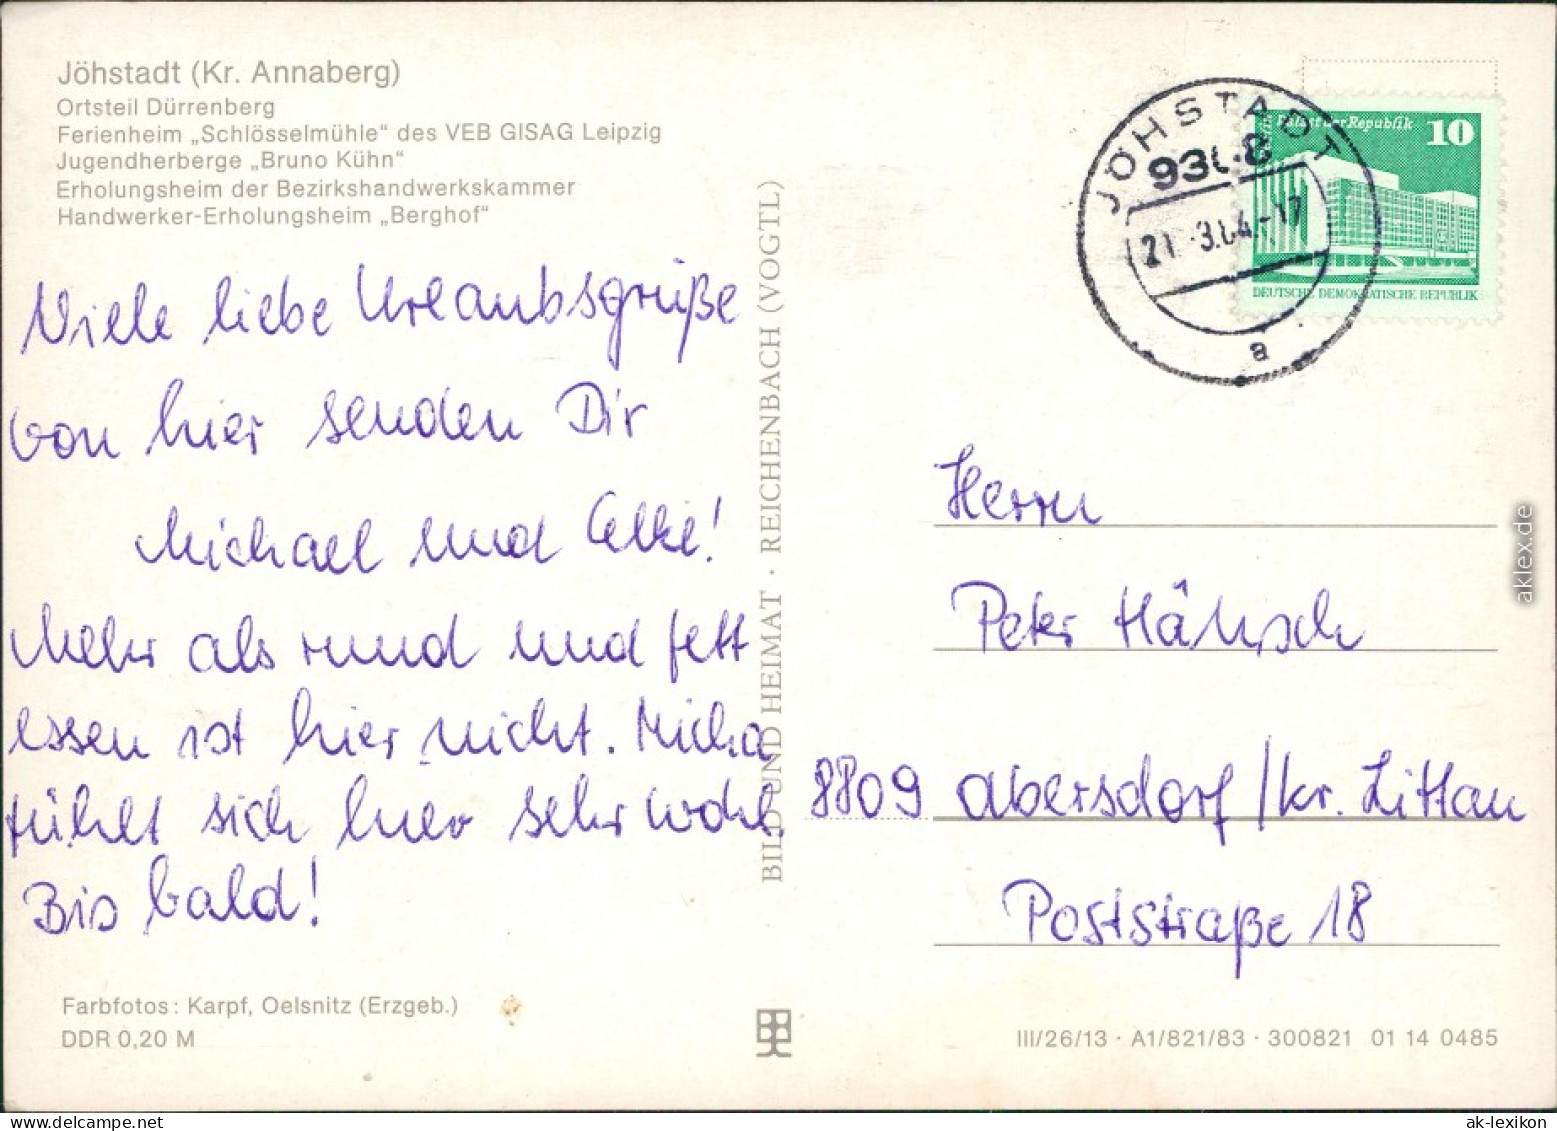 Jöhstadt (Kr. Annaberg)
Ortsteil Dürrenberg
Ferienheim „Schlösselmühle“ des VEB GISAG Leipzig
Jugendherberge „Bruno Kühn“
Erholungsheim der Bezirkshandwerkskammer
Handwerker-Erholungsheim „Berghof“
Viele liebe Urlaubsgrüße
von hier senden Dir
Michael und Elke!
Mehr als rund und fett
essen ist hier nicht. Micha
fühlt sich hier sehr wohl.
Bis bald!
Farbfotos: Karpf, Oelsnitz (Erzgeb.)
DDR 0,20 M
BILD UND HEIMAT · REICHENBACH (VOGTL)
JÖHSTADT
21.-3.84.-17
a
Palast der Republik 10
DEUTSCHE DEMOKRATISCHE REPUBLIK
Herrn
Peter
8809 Obersdorf/Kr. Zittau
Poststraße 18
III/26/13 · A1/821/83 · 300821 01 14 0485
aklex.de
ak-lexikon